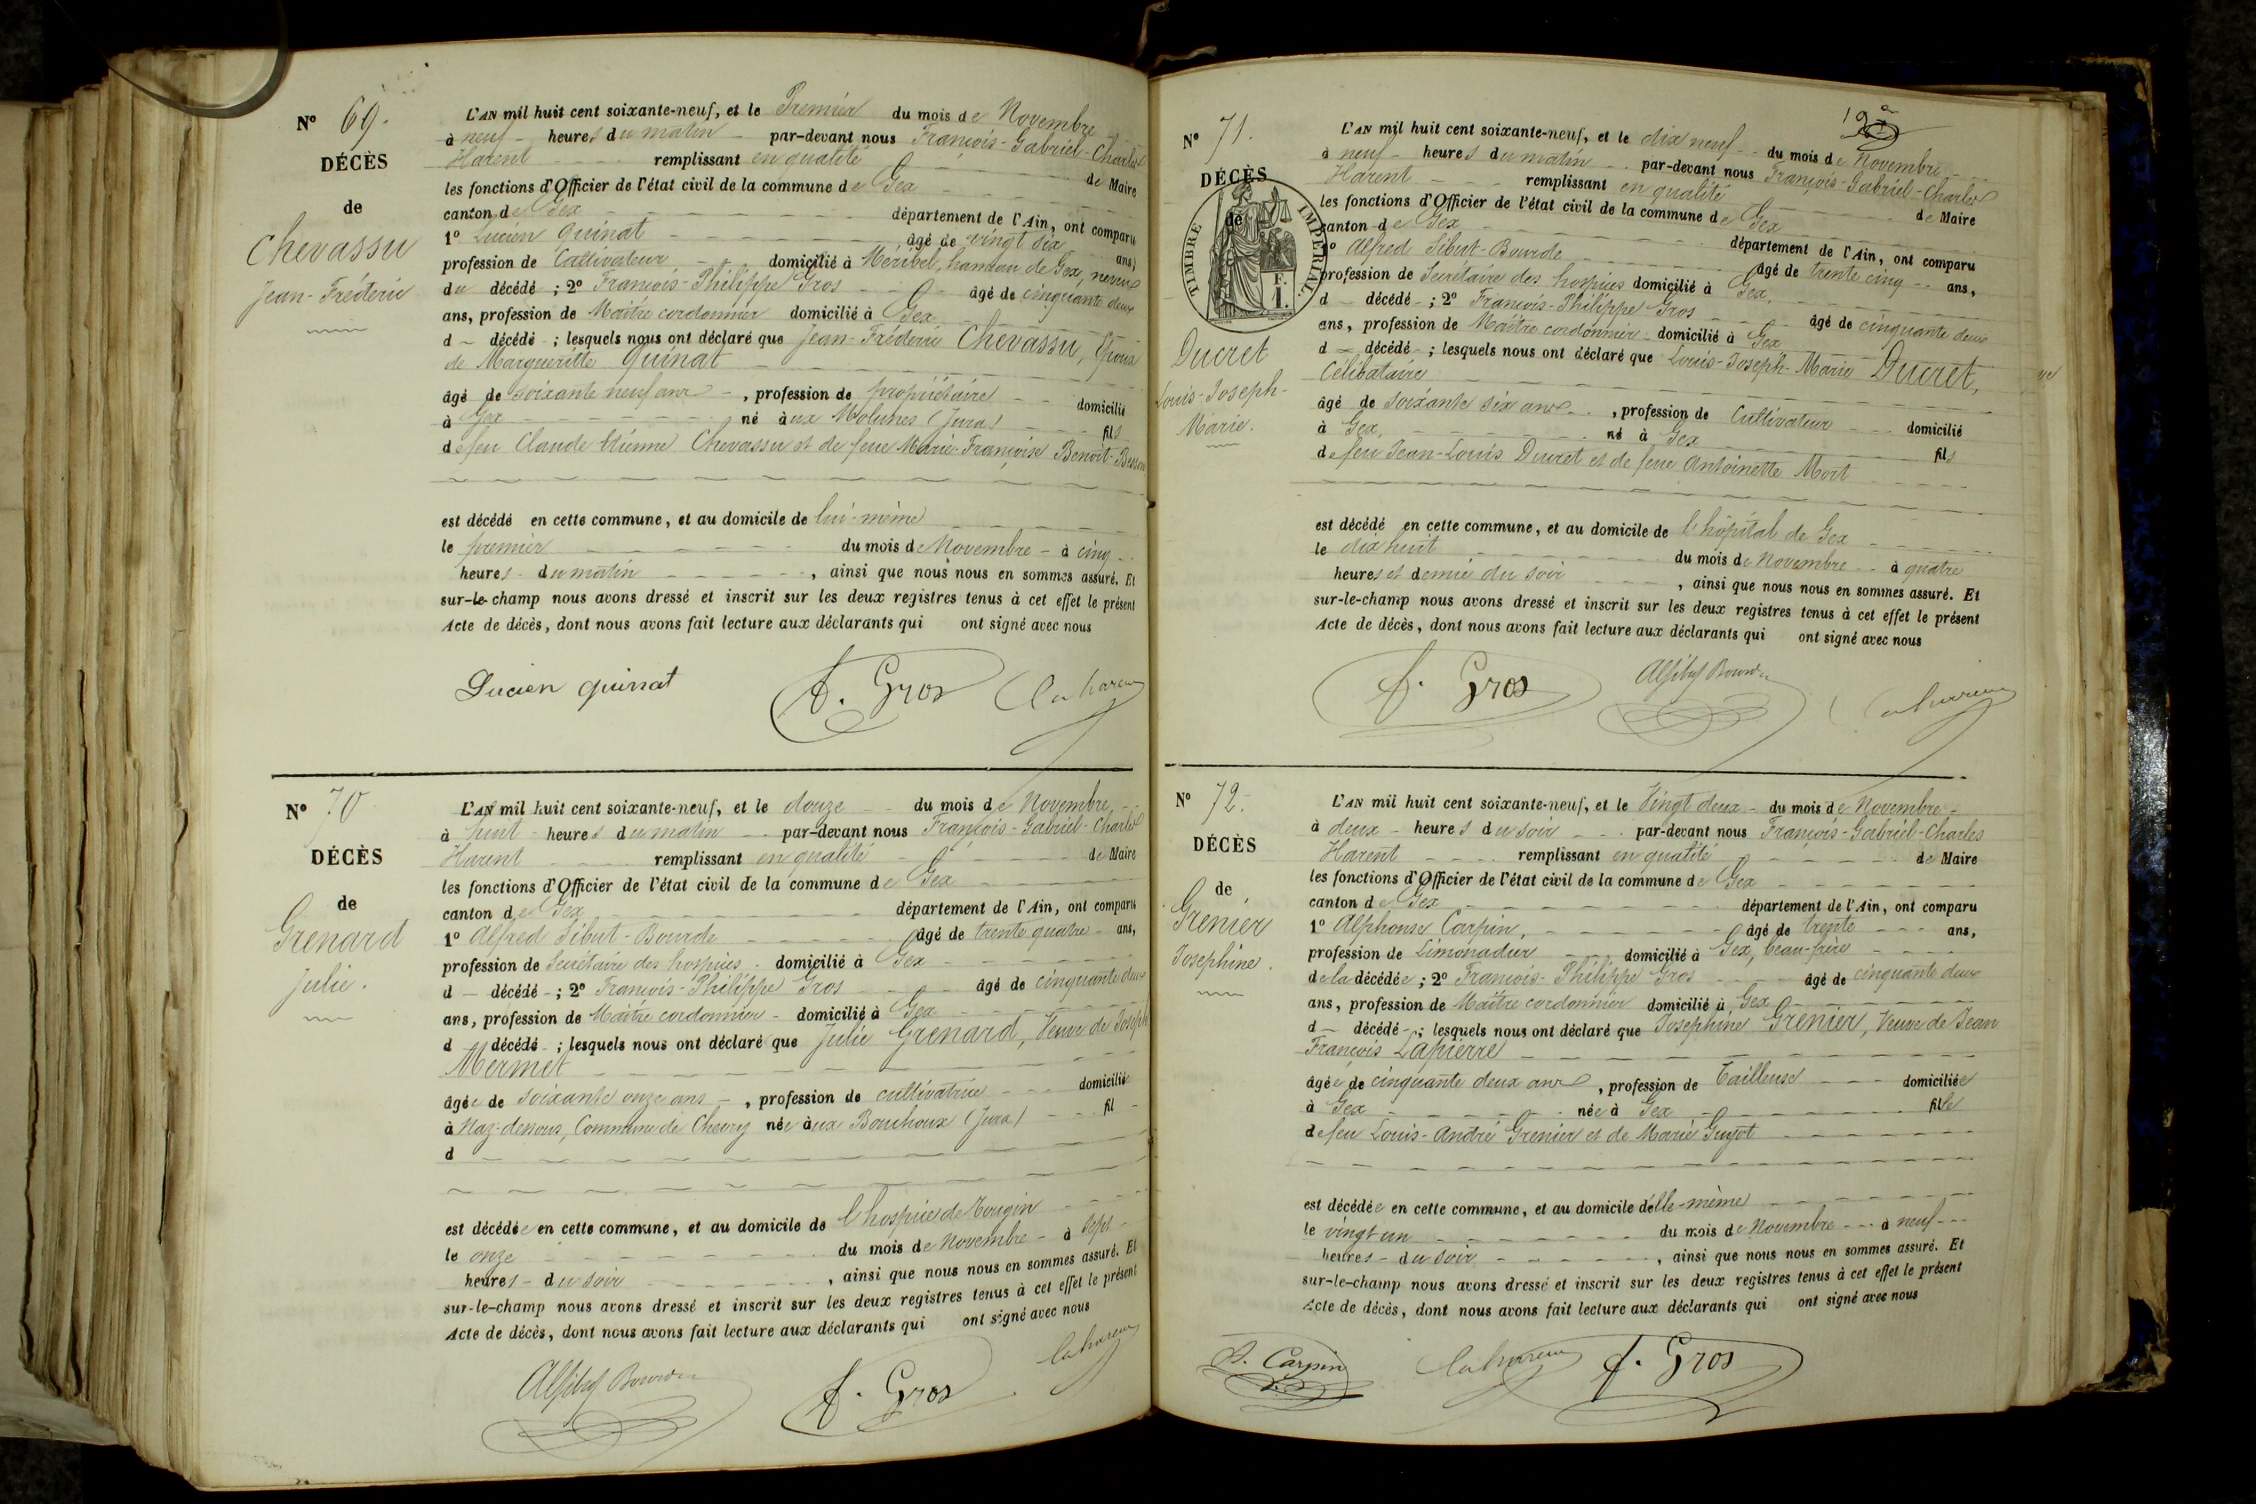 N° 69.
DÉCÈS
de
Chevassu
Jean-Fréderic
L'AN mil huit cent soixante-neuf, et le Premier du mois de Novembre
à neuf heures du matin par-devant nous François-Gabriel-Charles
Harent remplissant en qualité de Maire
les fonctions d'Officier de l'état civil de la commune de Gex
canton de Gex département de l'Ain, ont comparu
1° Lucien Quinat âgé de vingt six ans,
profession de Cultivateur domicilié à Méribel, hameau de Gex, neveu
du décédé ; 2° François-Philippe Gros âgé de cinquante deux
ans, profession de Maître cordonnier domicilié à Gex
d décédé ; lesquels nous ont déclaré que Jean-Fréderic Chevassu, Epoux
de Margueritte Quinat
âgé de soixante neuf ans, profession de propriétaire domicilié
à Gex né aux Molunes (Jura) fils
de feu Claude Etienne Chevassu et de feue Marie-Françoise Benoit-
est décédé en cette commune, et au domicile de lui-même
le premier du mois de Novembre à cinq
heures du matin, ainsi que nous nous en sommes assuré. Et
sur-le-champ nous avons dressé et inscrit sur les deux registres tenus à cet effet le présent
Acte de décès, dont nous avons fait lecture aux déclarants qui ont signé avec nous
Lucien quinat f. Gros
N° 70
DÉCÈS
de
Grenard
Julie.
L'AN mil huit cent soixante-neuf, et le douze du mois de Novembre
à huit heures du matin par-devant nous François-Gabriel-Charles
Harent remplissant en qualité de Maire
les fonctions d'Officier de l'état civil de la commune de Gex
canton de Gex département de l'Ain, ont comparu
1° Alfred Sibut-Bourde âgé de trente quatre ans,
profession de Secrétaire des hospices domicilié à Gex
d décédé ; 2° François-Philippe Gros âgé de cinquante deux
ans, profession de Maître cordonnier domicilié à Gex
d décédé ; lesquels nous ont déclaré que Julie Grenard, Veuve de Joseph
Mermet
âgée de soixante onze ans, profession de cultivatrice domiciliée
à Naz-dessous, Commune de Chevry née aux Bouchoux (Jura) fil
d
est décédée en cette commune, et au domicile de l'hospice de Tougin
le onze du mois de Novembre à sept
heures du soir, ainsi que nous nous en sommes assuré. Et
sur-le-champ nous avons dressé et inscrit sur les deux registres tenus à cet effet le présent
Acte de décès, dont nous avons fait lecture aux déclarants qui ont signé avec nous
f. Gros
N° 71.
DÉCÈS
de
TIMBRE IMPÉRIAL.
F.
1.
Ducret
Louis-Joseph-
Marie.
L'AN mil huit cent soixante-neuf, et le dix neuf du mois de Novembre
à neuf heures du matin par-devant nous François-Gabriel-Charles
Harent remplissant en qualité de Maire
les fonctions d'Officier de l'état civil de la commune de Gex
canton de Gex département de l'Ain, ont comparu
1° Alfred Sibut-Bourde âgé de trente cinq ans,
profession de Secrétaire des hospices domicilié à Gex,
d décédé ; 2° François-Philippe Gros âgé de cinquante deux
ans, profession de Maître cordonnier domicilié à Gex
d décédé ; lesquels nous ont déclaré que Louis-Joseph-Marie Ducret,
Célibataire
âgé de soixante six ans, profession de Cultivateur domicilié
à Gex, né à Gex fils
de feu Jean-Louis Ducret et de feue Antoinette Mort
est décédé en cette commune, et au domicile de l'hôpital de Gex
le dix huit du mois de Novembre à quatre
heures et demie du soir, ainsi que nous nous en sommes assuré. Et
sur-le-champ nous avons dressé et inscrit sur les deux registres tenus à cet effet le présent
Acte de décès, dont nous avons fait lecture aux déclarants qui ont signé avec nous
f. Gros
N° 72.
DÉCÈS
de
Grenier
Josephine.
L'AN mil huit cent soixante-neuf, et le Vingt deux du mois de Novembre
à deux heures du soir par-devant nous François-Gabriel-Charles
Harent remplissant en qualité de Maire
les fonctions d'Officier de l'état civil de la commune de Gex
canton de Gex département de l'Ain, ont comparu
1° Alphonse Carpin, âgé de trente ans,
profession de Limonadier domicilié à Gex, beau-frère
de la décédée ; 2° François-Philippe Gros âgé de cinquante deux
ans, profession de Maître cordonnier domicilié à Gex
d décédé ; lesquels nous ont déclaré que Josephine Grenier, Veuve de Jean
François Lapierre
âgée de cinquante deux ans, profession de Tailleuse domiciliée
à Gex née à Gex fille
de feu Louis-André Grenier et de Marie Guyot
est décédée en cette commune, et au domicile d'elle-même
le vingt un du mois de Novembre à neuf
heures du soir, ainsi que nous nous en sommes assuré. Et
sur-le-champ nous avons dressé et inscrit sur les deux registres tenus à cet effet le présent
Acte de décès, dont nous avons fait lecture aux déclarants qui ont signé avec nous
A. Carpin f. Gros